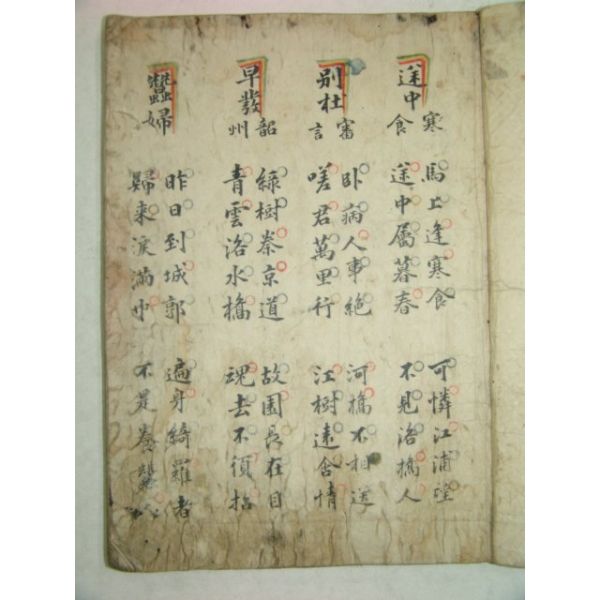 途中寒食
馬上逢寒食
途中屬暮春
可憐江浦望
不見洛橋人
別杜審言
卧病人事絶
嗟君萬里行
河橋不相送
江樹遠含情
早發韶州
綠樹秦京道
青雲洛水橋
故園長在目
魂去不須招
蠶婦
昨日到城郭
歸來淚滿巾
遍身綺羅者
不是養蠶人